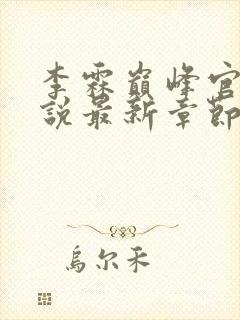 李霖巔峰官
說最新章節
烏尔禾